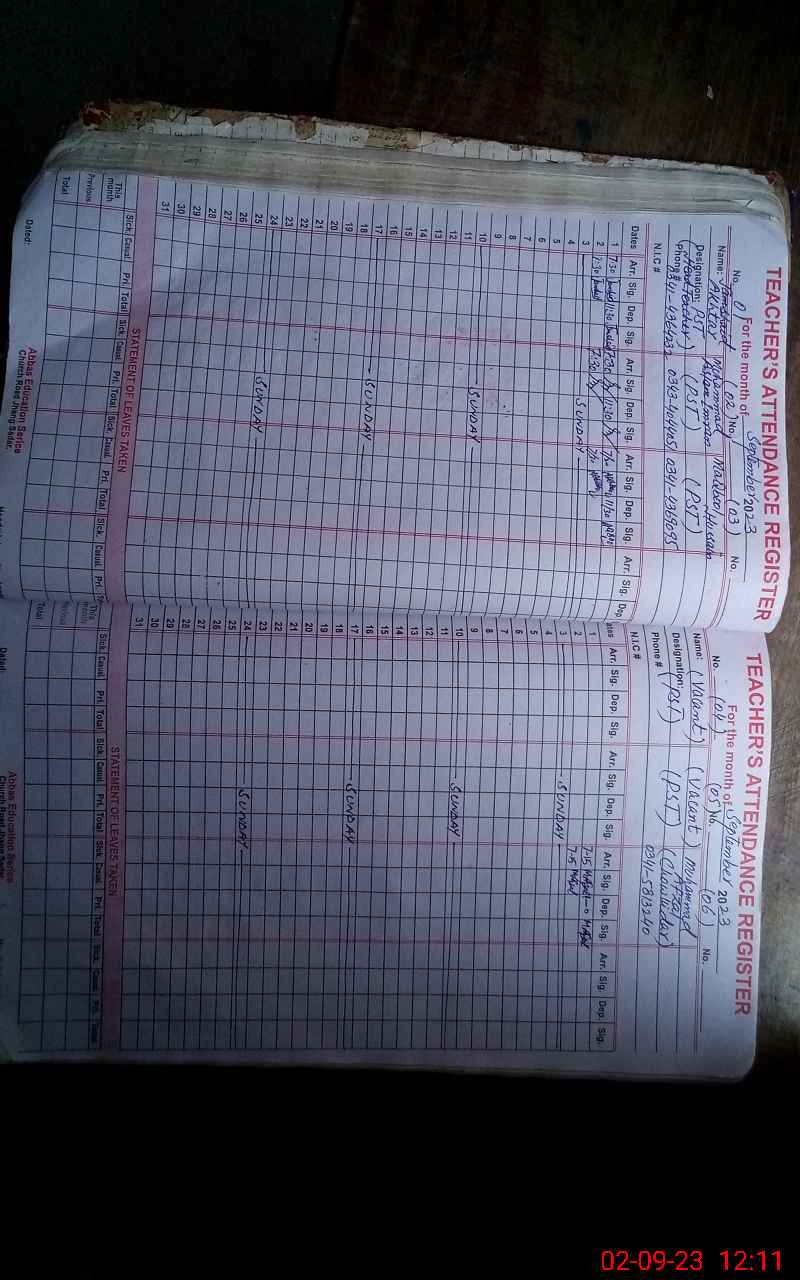 TEACHER'S ATTENDANCE REGISTER
For the month of September 2023
No. 01 (02) No. (03) No.
Name: Jamshaid Mohammad Maqbool Hussain
Akhtar Aslam Imran
Designation: PST (PST) (PST)
(Head Teacher)
Phone # 0341-4364232 0341-4369695
N.I.C #
Dates Arr. Sig. Dep. Sig. Arr. Sig. Dep. Sig. Arr. Sig. Dep. Sig. Arr. Sig. Dep.
1 7:30 11:30 7:30 11:30 7:30 11:30
2 7:30 7:30 7:30
3 SUNDAY
4
5
6
7
8
9
10 SUNDAY
11
12
13
14
15
16
17 SUNDAY
18
19
20
21
22
23
24 SUNDAY
25
26
27
28
29
30
31
STATEMENT OF LEAVES TAKEN
Sick. Casual. Pri. Total Sick. Casual. Pri. Total Sick. Casual. Pri. Total Sick. Casual. Pri.
This month
Previous
Total
Dated:
Abbas Education Serice
Church Road Jhang Sadar.
TEACHER'S ATTENDANCE REGISTER
For the month of September 2023
No. (04) (05) No. (06) No.
Name: (Vacant) (Vacant) Mohammad
Afzal
Designation: (PST) (PST) (Chowkidar)
Phone # 0341-5813240
N.I.C #
Arr. Sig. Dep. Sig. Arr. Sig. Dep. Sig. Arr. Sig. Dep. Sig. Arr. Sig. Dep. Sig.
1 7-15
2 7-15
3 SUNDAY
4
5
6
7
8
9
10 SUNDAY
11
12
13
14
15
16
17 SUNDAY
18
19
20
21
22
23
24 SUNDAY
25
26
27
28
29
30
31
STATEMENT OF LEAVES TAKEN
Sick. Casual. Pri. Total Sick. Casual. Pri. Total Sick. Casual. Pri. Total Sick. Casual. Pri. Total
This month
Previous
Total
Dated:
Abbas Education Serice
Church Road Jhang Sadar.
02-09-23 12:11